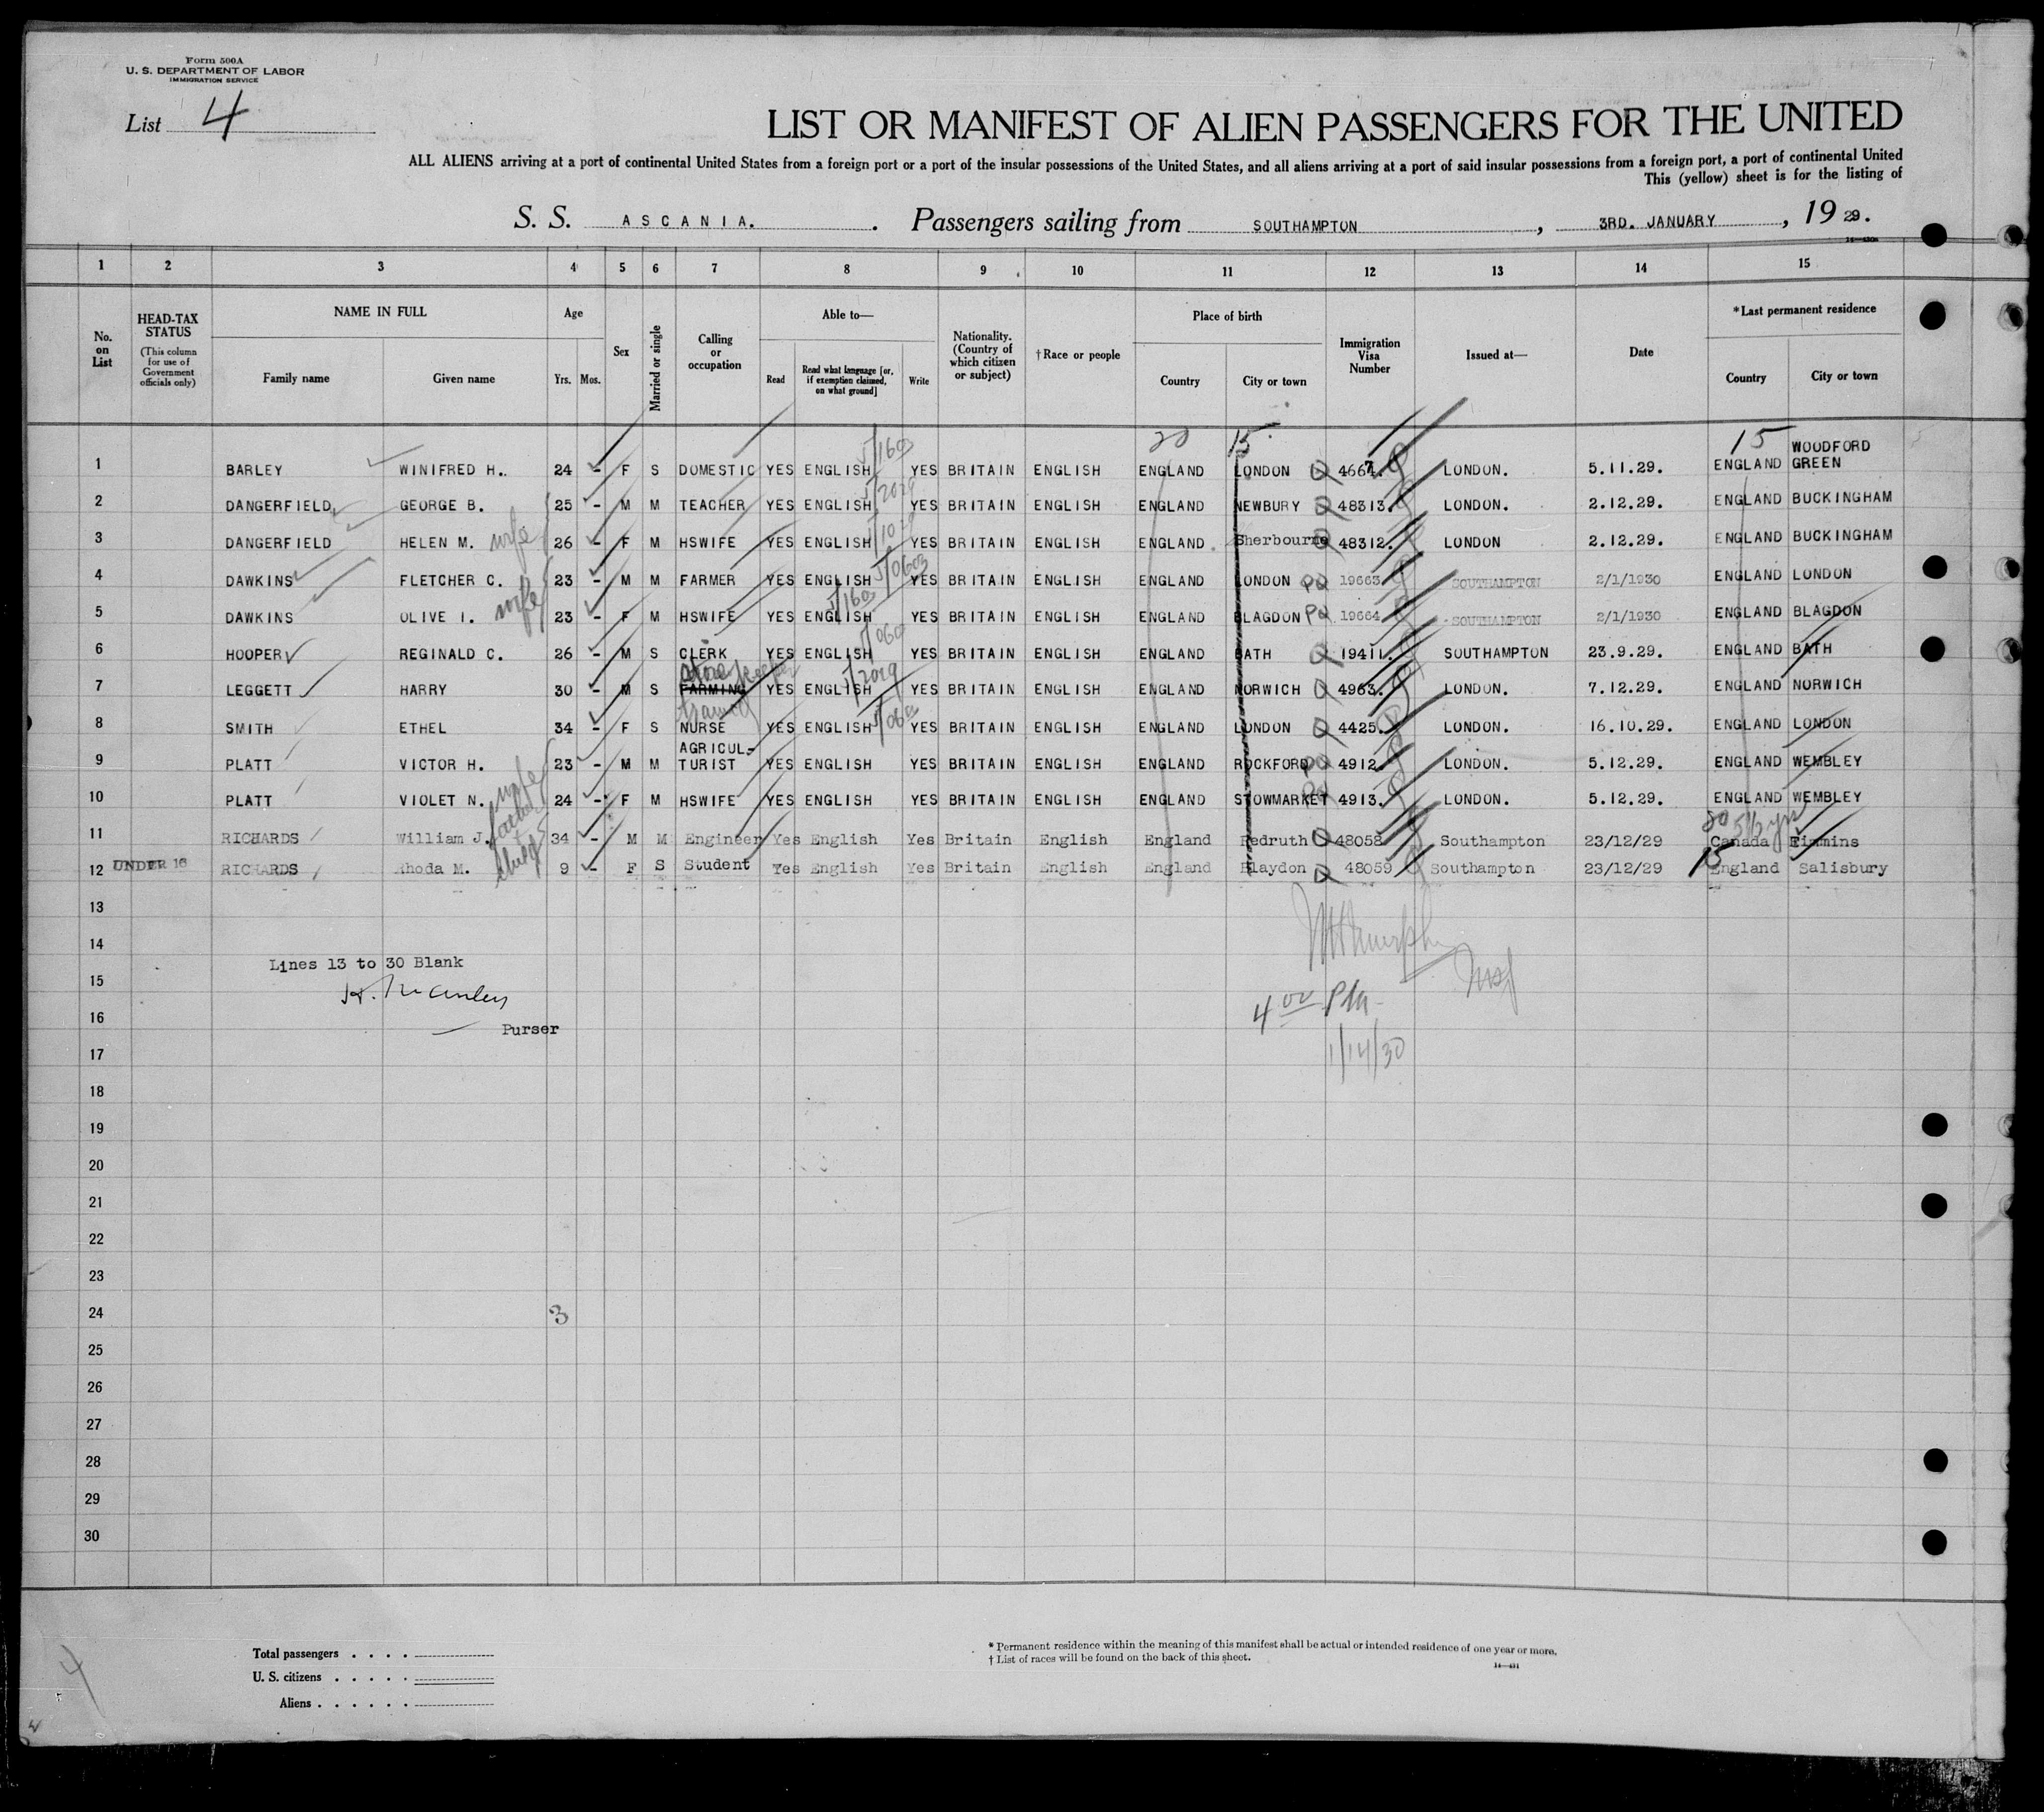 Form 500A
U. S. DEPARTMENT OF LABOR
IMMIGRATION SERVICE
List 4
LIST OR MANIFEST OF ALIEN PASSENGERS FOR THE UNITED
ALL ALIENS arriving at a port of continental United States from a foreign port or a port of the insular possessions of the United States, and all aliens arriving at a port of said insular possessions from a foreign port, a port of continental United
This (yellow) sheet is for the listing of
S. S. ASCANIA. . Passengers sailing from SOUTHAMPTON , 3RD. JANUARY , 19 29.
1 2 3 4 5 6 7 8 9 10 11 12 13 14 15
No. on List
HEAD-TAX STATUS (This column for use of Government officials only)
NAME IN FULL
Family name Given name
Age
Yrs. Mos.
Sex
Married or single
Calling or occupation
Able to—
Read Read what language [or, if exemption claimed, on what ground] Write
Nationality. (Country of which citizen or subject)
†Race or people
Place of birth
Country City or town
Immigration Visa Number
Issued at—
Date
*Last permanent residence
Country City or town
20 15 15
1 BARLEY WINIFRED H. 24 - F S DOMESTIC YES ENGLISH YES BRITAIN ENGLISH ENGLAND LONDON Q 4667. LONDON. 5.11.29. ENGLAND WOODFORD GREEN
2 DANGERFIELD GEORGE B. 25 - M M TEACHER YES ENGLISH YES BRITAIN ENGLISH ENGLAND NEWBURY Q 48313. LONDON. 2.12.29. ENGLAND BUCKINGHAM
3 DANGERFIELD HELEN M. wife 26 - F M HSWIFE YES ENGLISH YES BRITAIN ENGLISH ENGLAND Sherbourne Q 48312. LONDON 2.12.29. ENGLAND BUCKINGHAM
4 DAWKINS FLETCHER C. 23 - M M FARMER YES ENGLISH YES BRITAIN ENGLISH ENGLAND LONDON PQ 19663 SOUTHAMPTON 2/1/1930 ENGLAND LONDON
5 DAWKINS OLIVE I. wife 23 - F M HSWIFE YES ENGLISH YES BRITAIN ENGLISH ENGLAND BLAGDON PQ 19664 SOUTHAMPTON 2/1/1930 ENGLAND BLAGDON
6 HOOPER REGINALD C. 26 - M S CLERK YES ENGLISH YES BRITAIN ENGLISH ENGLAND BATH Q 19411. SOUTHAMPTON 23.9.29. ENGLAND BATH
7 LEGGETT HARRY 30 - M S FARMING YES ENGLISH YES BRITAIN ENGLISH ENGLAND NORWICH Q 4963. LONDON. 7.12.29. ENGLAND NORWICH
8 SMITH ETHEL 34 - F S NURSE YES ENGLISH YES BRITAIN ENGLISH ENGLAND LONDON Q 4425. LONDON. 16.10.29. ENGLAND LONDON
9 PLATT VICTOR H. 23 - M M AGRICUL-TURIST YES ENGLISH YES BRITAIN ENGLISH ENGLAND ROCKFORD PQ 4912. LONDON. 5.12.29. ENGLAND WEMBLEY
10 PLATT VIOLET N. wife 24 - F M HSWIFE YES ENGLISH YES BRITAIN ENGLISH ENGLAND STOWMARKET PQ 4913. LONDON. 5.12.29. ENGLAND WEMBLEY
11 RICHARDS William J. father 34 - M M Engineer Yes English Yes Britain English England Redruth Q 48058 Southampton 23/12/29 Canada Timmins
12 UNDER 16 RICHARDS Rhoda M. child 9 - F S Student Yes English Yes Britain English England Blaydon Q 48059 Southampton 23/12/29 15 England Salisbury
13
14
Lines 13 to 30 Blank
15
4 00 PM
16
Purser
1/14/30
17
18
19
20
21
22
23
24 3
25
26
27
28
29
30
Total passengers . . . .
U. S. citizens . . . . .
Aliens . . . . . .
* Permanent residence within the meaning of this manifest shall be actual or intended residence of one year or more.
† List of races will be found on the back of this sheet.
4